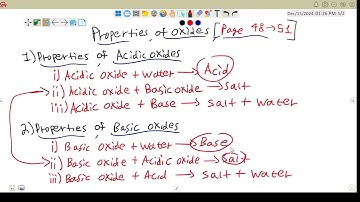 Dec/15/2024 01:26 PM 1/2
Properties of oxides [Page 48→51]
1) Properties of Acidic oxides
i) Acidic oxide + water → Acid
ii) Acidic oxide + Basic oxide → Salt
iii) Acidic oxide + Base → Salt + Water
2) Properties of Basic oxides
i) Basic oxide + water → Base
ii) Basic oxide + Acidic oxide → Salt
iii) Basic oxide + Acid → Salt + Water